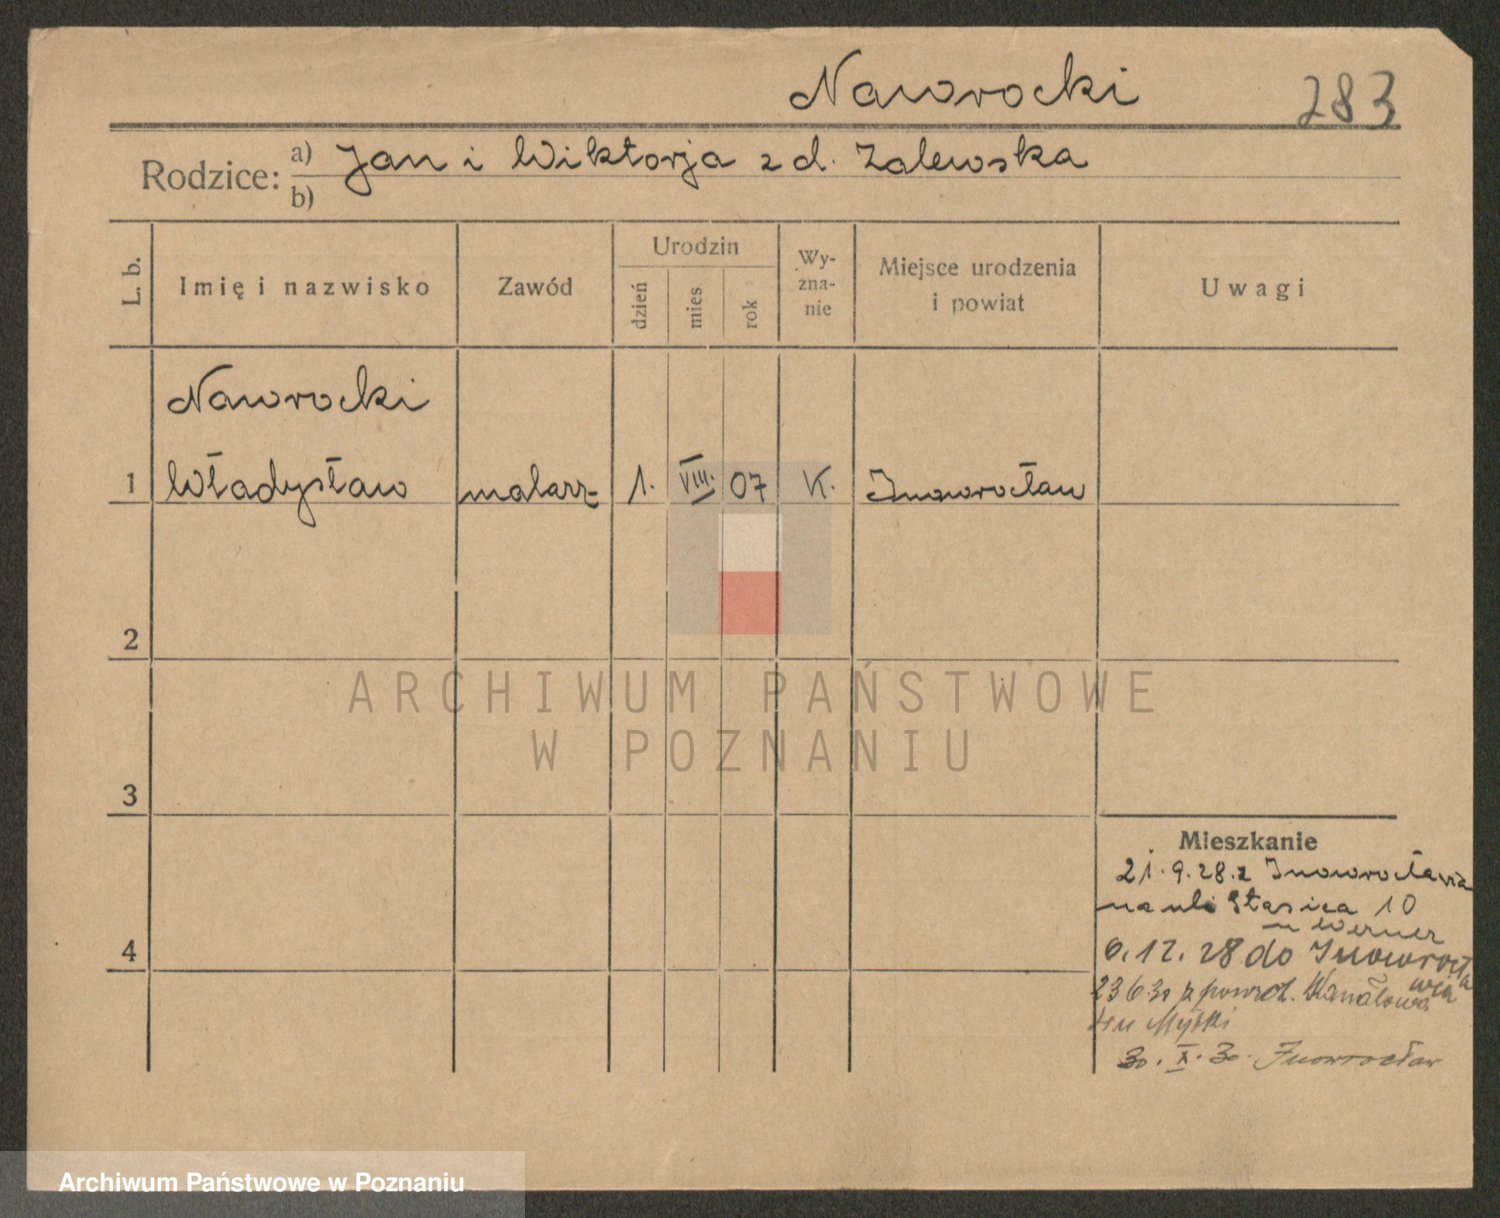 Naworocki 283
Rodzice: a) Jan i Wiktorja z d. Zalewska
b)
L. b. Imię i nazwisko Zawód Urodzin dzień mies rok Wy-zna-nie Miejsce urodzenia i powiat Uwagi
Naworocki
1 Władysław malarz 1. VIII. 07 K. Inowrocław
2
ARCHIWUM PAŃSTWOWE
W POZNANIU
3
Mieszkanie
21.9.28. z Inowrocławia
na ul. Stasica 10
u Werner
4
6.12.28 do Inowrocławia
23 6 30 z powrot. Kanałowa
u Myski
30. X. 30. Inowrocław
Archiwum Państwowe w Poznaniu